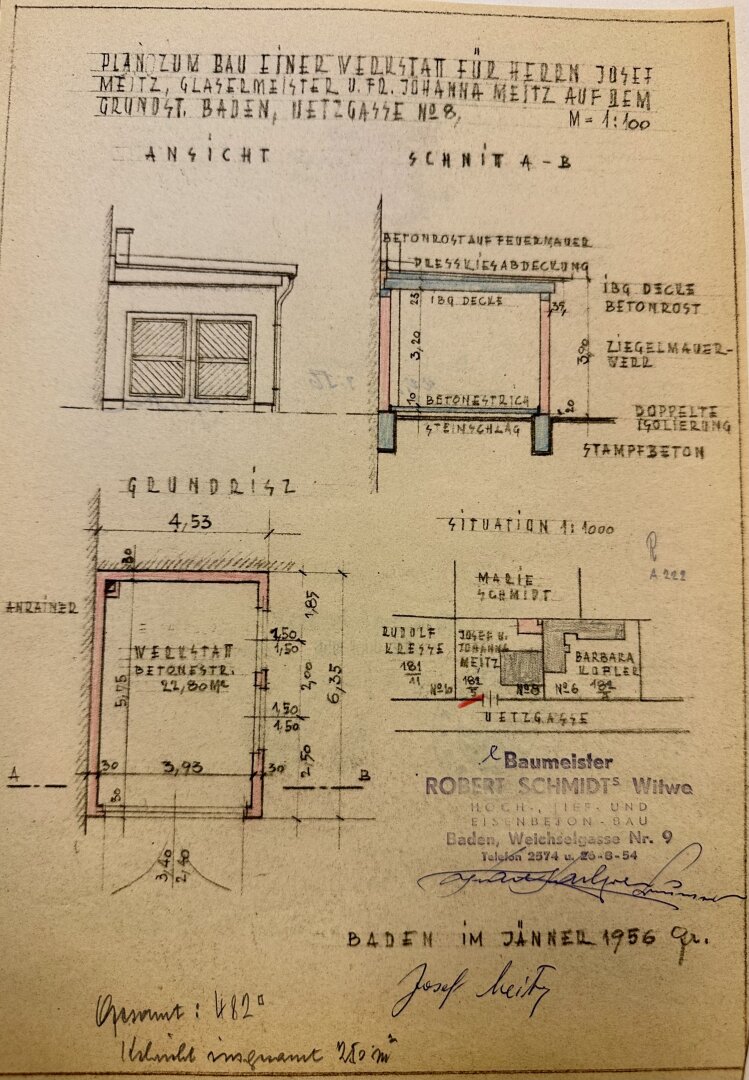 PLAN ZUM BAU EINER WERKSTATT FÜR HERRN JOSEF
MEITZ, GLASERMEISTER U. FR. JOHANNA MEITZ AUF DEM
GRUNDST. BADEN, UETZGASSE No 8,
M = 1:100
ANSICHT
SCHNITT A - B
BETONROST AUF FEUERMAUER
PRESSKIESABDECKUNG
IBQ DECKE
25
35
IBQ DECKE
BETONROST
3,20
3,90
ZIEGELMAUER-
WERK
10
BETONESTRICH
20
STEINSCHLAG
DOPPELTE
ISOLIERUNG
STAMPFBETON
GRUNDRISZ
4,53
30
ANRAINER
WERKSTATT
BETONESTR.
22,80 M²
5,75
1,85
1,50
1,50
2,00
6,35
1,50
1,50
2,50
A
30
3,93
30
B
30
3,40
2,40
SITUATION 1:1000
A.222
MARIE
SCHMIDT
RUDOLF
KRESSE
181
11
No 10
JOSEF U.
JOHANNA
MEITZ
No 8
No 6
BARBARA
UETZGASSE
Baumeister
ROBERT SCHMIDTs Witwe
HOCH-, TIEF- UND
EISENBETON-BAU
Baden, Weichselgasse Nr. 9
Telefon 2574 u. 26-8-54
BADEN IM JÄNNER 1956
Josef Meitz
Gesamt : 482
insgesamt 250 m²